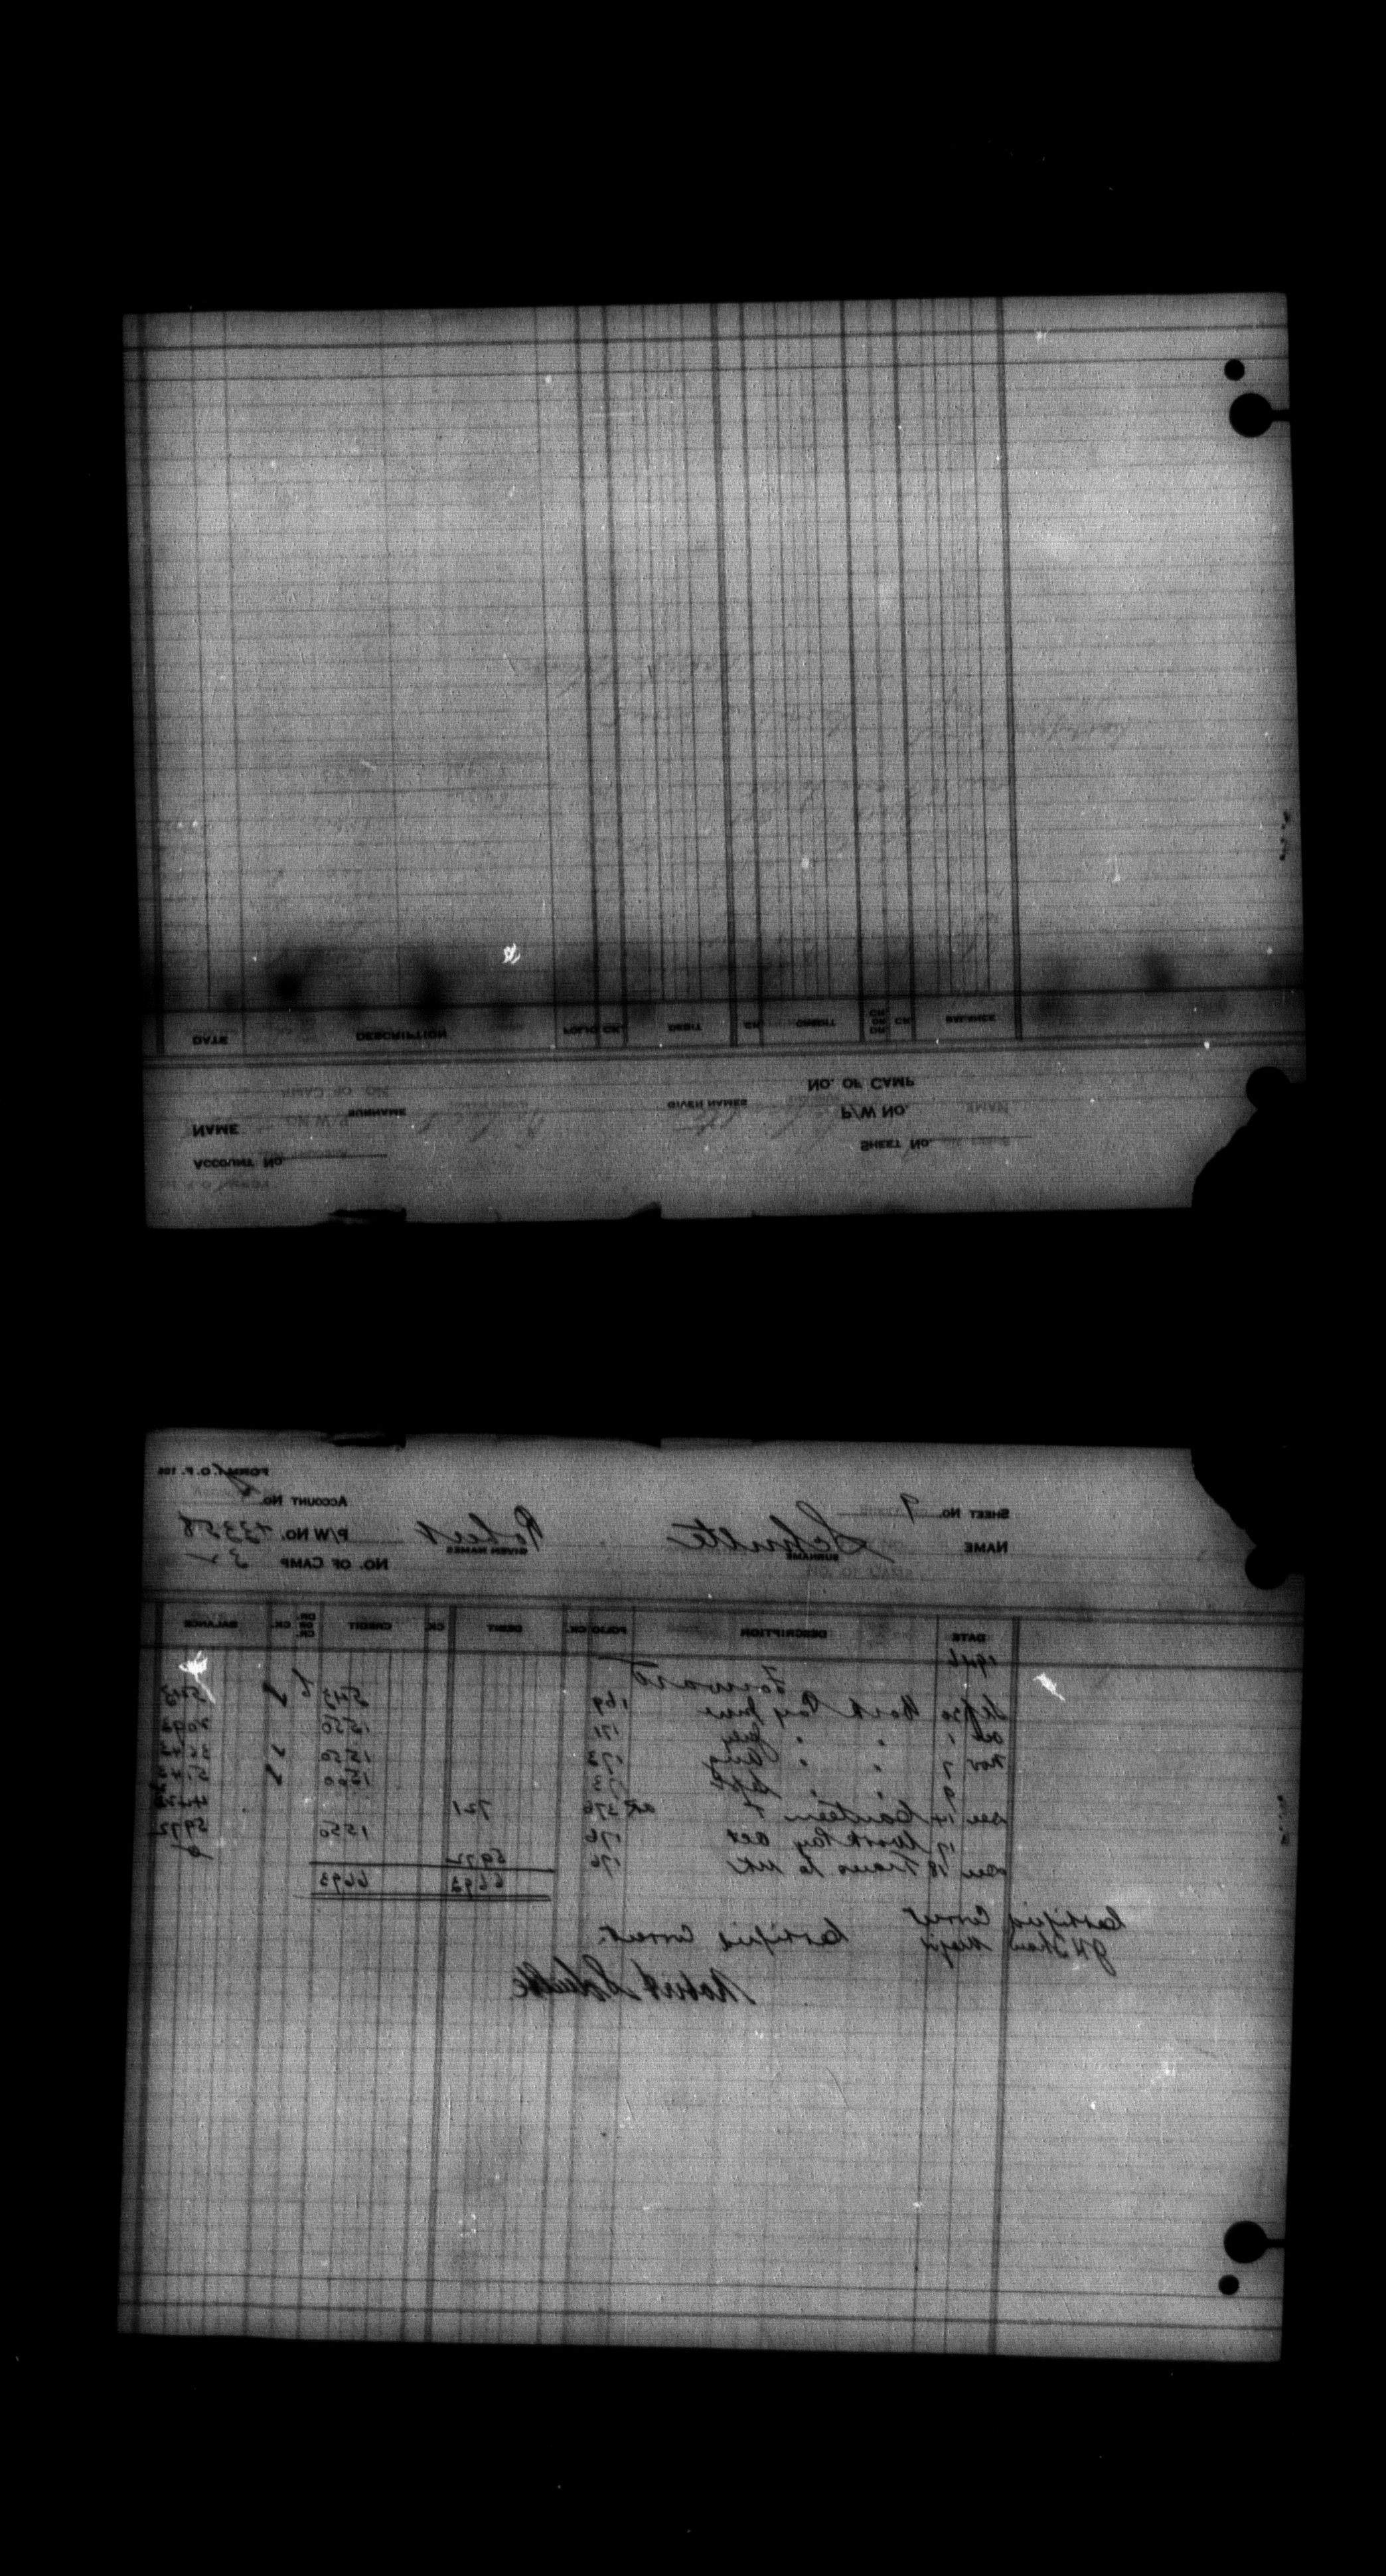 ACCOUNT NO. SHEET NO.
NAME SURNAME GIVEN NAMES P/W NO.
NO. OF CAMP
DATE DESCRIPTION FOLIO CK. DEBIT CK. CREDIT DR. OR CR. CK. BALANCE
FORM T.O.P. 106
SHEET No. 9 ACCOUNT No.
NAME Schulte Robert P/W No.
SURNAME GIVEN NAMES NO. OF CAMP 32
DATE DESCRIPTION FOLIO CK. DEBIT CK. CREDIT DR. OR CR. CK. BALANCE
1946
Forward 543 543
Sep 30 Work Pay June 169 1550 2093
Oct 1 " " July 171 1550 3643
Nov 7 " " Aug 173 1500 5143
9 " " Sept 173
Dec 14 Canteen 376 721 4422
17 Work Pay Oct 176 1550 5972
Dec 18 Trans to UK 176 5972 0
6693 6693
Certified Correct Certified Correct.
Robert Schulte